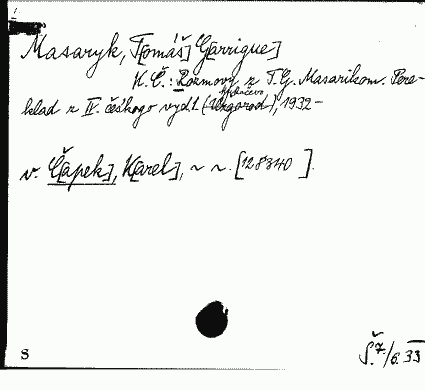 Masaryk, T[omáš] G[arrigue]
K. Č.: Rozmovy z T. G. Masarikom. Pere-
klad z IV. češkogo vyd. (Užgorod), 1932 –
v. Č[apek], K[arel], ~ ~. [128340 ].
8
Š. 7/6.33